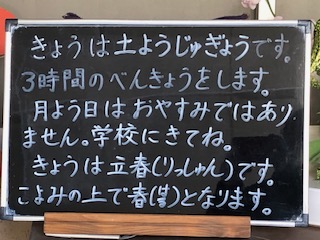 きょうは土ようじゅぎょうです。
3時間のべんきょうをします。
月よう日はおやすみではあり
ません。学校にきてね。
きょうは立春(りっしゅん)です。
こよみの上で春(はる)となります。